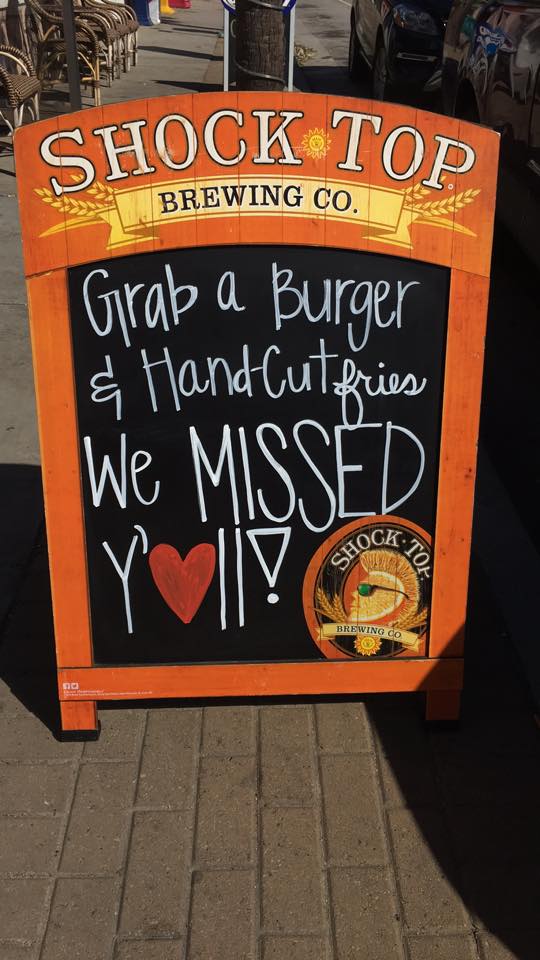 SHOCK TOP
BREWING CO.
Grab a Burger
& Hand-Cut fries
We MISSED
Y'❤ll!
SHOCK·TOP
BREWING CO.